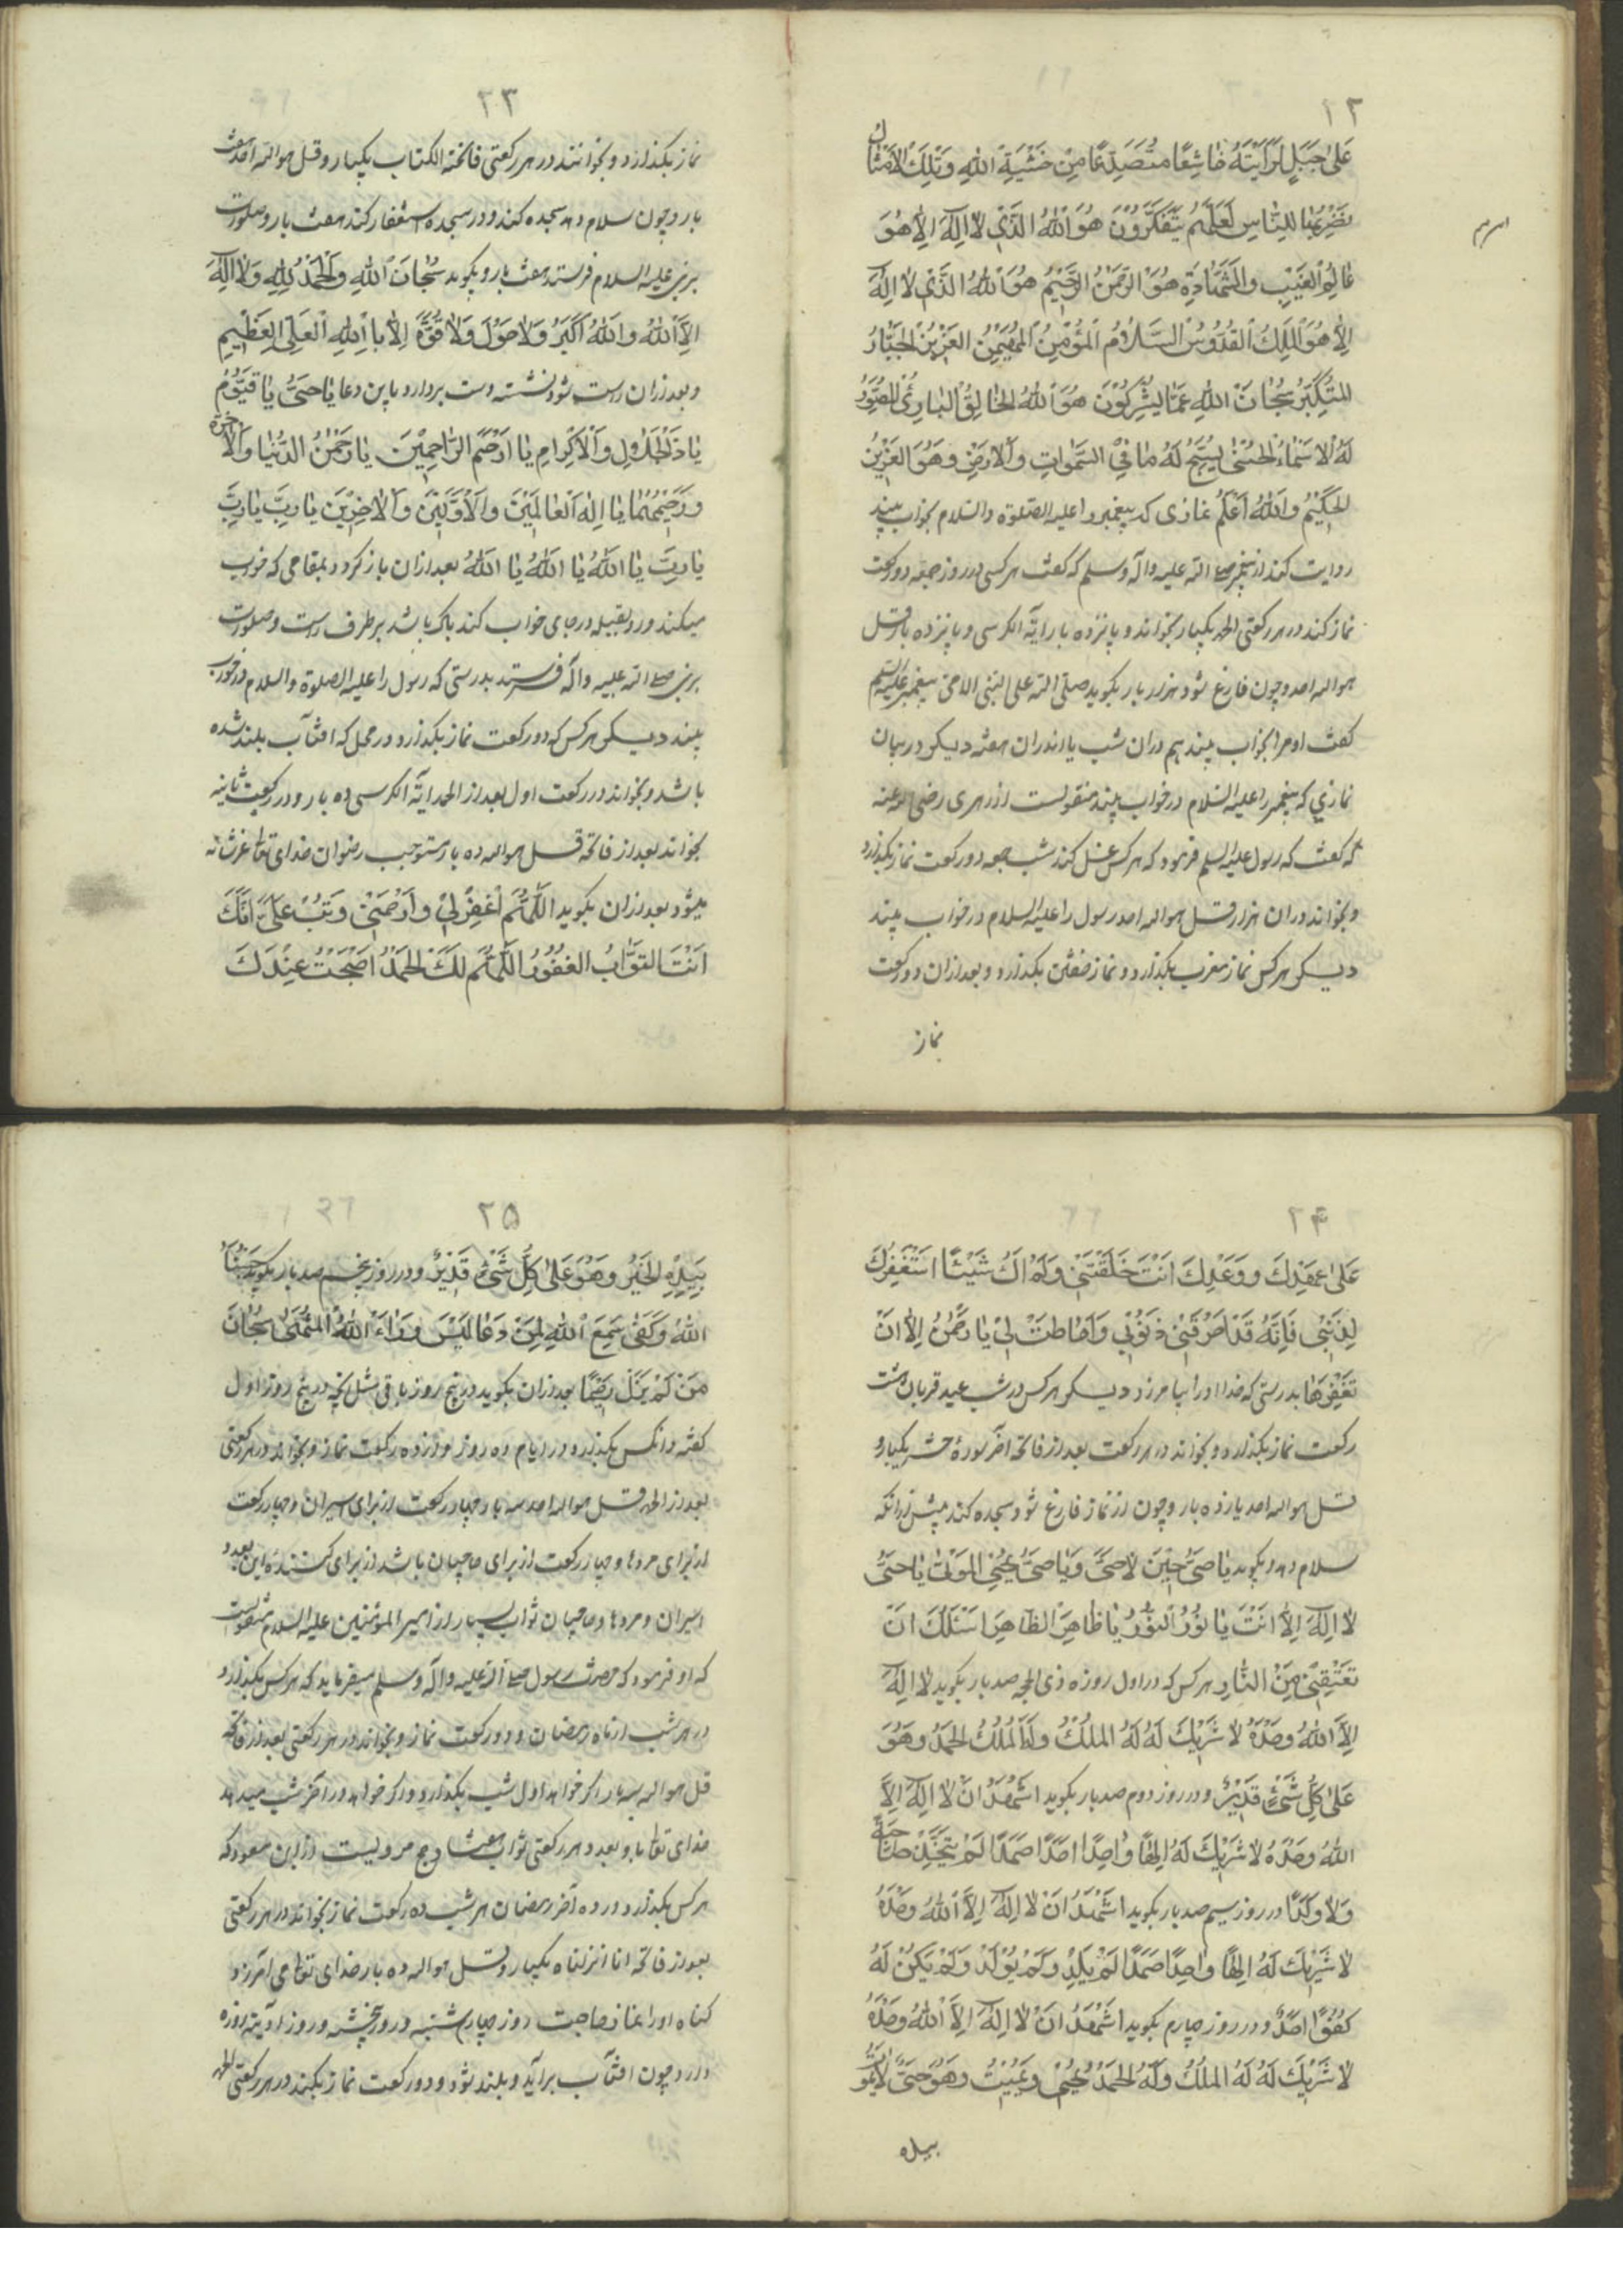 ۲۲
علی جبل لرایته خاشعا متصدعا من خشیة الله وتلک الامثال
نضربها للناس لعلهم یتفکرون هو الله الذی لا اله الا هو
عالم الغیب والشهادة هو الرحمن الرحیم هو الله الذی لا اله
الا هو الملک القدوس السلام المؤمن المهیمن العزیز الجبار
المتکبر سبحان الله عما یشرکون هو الله الخالق البارئ المصور
له الاسماء الحسنی یسبح له ما فی السموات والارض وهو العزیز
الحکیم والله اعلم نمازی که پیغمبر را علیه الصلوة والسلام بخواب بیند
روایت کند از پیغمبر صلی الله علیه وآله وسلم که گفت هر کسی در روز جمعه دو رکعت
نماز کند در هر رکعتی الحمد یکبار بخواند و پانزده بار آیة الکرسی و پانزده بار قل
هو الله احد و چون فارغ شود هزار بار بگوید صلی الله علی النبی الامی پیغمبر علیه السلم
گفت او مرا بخواب بیند هم دران شب یا اندران هفته دیگر در بیان
نمازی که پیغمبر را علیه السلام در خواب بیند منقولست از زهری رضی الله عنه
که گفت که رسول علیه السلم فرمود که هر کس غسل کند شب جمعه دو رکعت نماز بگذارد
و بخواند دران هزار قل هو الله احد رسول را علیه السلام در خواب بیند
دیگر هر کس نماز مغرب بگذارد و نماز خفتن بگذارد و بعد ازان دو رکعت
نماز
۲۳
نماز بگذارد و بخوانند در هر رکعتی فاتحة الکتاب یکبار و قل هو الله احد هفت
بار و چون سلام دهد سجده کند و در سجده استغفار کند هفت بار و صلوات
بر نبی علیه السلام فرستد هفت بار و بگوید سبحان الله والحمد لله ولا اله
الا الله والله اکبر ولا حول ولا قوة الا بالله العلی العظیم
و بعد ازان راست شود نشسته دست بردارد باین دعا یا حی یا قیوم
یا ذالجلال والاکرام یا ارحم الراحمین یا رحمن الدنیا والآخرة
ورحیمهما یا اله العالمین والاولین والاخرین یا رب یا رب
یا رب یا الله یا الله یا الله بعد ازان باز گردد بمقامی که خواب
میکند و رو بقبله در جای خواب کند پاک باشد بر طرف راست و صلوات
بر نبی صلی الله علیه وآله فرستد بدرستی که رسول را علیه الصلوة والسلام در خواب
بیند دیگر هر کس که دو رکعت نماز بگذارد در محل که افتاب بلند شده
باشد و بخواند در رکعت اول بعد از الحمد ایة الکرسی ده بار و در رکعت ثانیه
بخواند بعد از فاتحه قل هو الله ده بار مستوجب رضوان خدای تعالی عز شانه
میشود بعد ازان بگوید اللهم اغفر لی وارحمنی وتب علی انک
انت التواب الغفور اللهم لک الحمد اصبحت عبدک
۲۴
علی عهدک ووعدک انت خلقتنی ولم اک شیئا استغفرک
لذنبی فانه قد احرقتنی ذنوبی واحاطت لی یا رحمن الا ان
تغفرها بدرستی که خدا او را بیامرزد دیگر هر کس در شب عید قربان هشت
رکعت نماز بگذارد و بخواند در هر رکعت بعد از فاتحه آخر سورهٔ حشر یکبار و
قل هو الله احد یازده بار و چون از نماز فارغ شود سجده کند پیش ازانکه
سلام دهد و بگوید یا حی حین لا حی ویا حی یحیی الموتی یا حی
لا اله الا انت یا نور النور یا ظاهر الظاهر اسئلک ان
تعتقنی من النار هر کس که در اول روزه ذی الحجه صد بار بگوید لا اله
الا الله وحده لا شریک له له الملک وله الملک الحمد وهو
علی کل شیء قدیر و در روز دوم صد بار بگوید اشهد ان لا اله الا
الله وحده لا شریک له الها واحدا احدا صمدا لم یتخذ صاحبة
ولا ولدا در روز سیم صد بار بگوید اشهد ان لا اله الا الله وحده
لا شریک له الها واحدا صمدا لم یلد ولم یولد ولم یکن له
کفوا احد و در روز چهارم بگوید اشهد ان لا اله الا الله وحده
لا شریک له له الملک وله الحمد یحیی ویمیت وهو حی لا یموت
بیده
۲۵
بیده الخیر وهو علی کل شیء قدیر و در روز پنجم صد بار بگوید حسبنا
الله وکفی سمع الله لمن دعا لیس وراء الله المنتهی سبحان
من لم یزل رحیما بعد ازان بگوید در پنج روز باقی مثل آنچه در پنج روز اول
گفته و انکس بگذارد در ایام ده روز دوازده رکعت نماز و بخواند در هر رکعتی
بعد از الحمد قل هو الله احد سه بار چهار رکعت از برای اسیران و چهار رکعت
از برای مردها و چهار رکعت از برای حاجیان باشد از برای کننده این بعدد
اسیران و مردها و حاجیان ثواب بسیار از امیر المؤمنین علیه السلام منقولست
که او فرمود که حضرت رسول صلی الله علیه وآله وسلم میفرماید که هر کس بگذارد
در هر شب از ماه رمضان دو رکعت نماز و بخواند در هر رکعتی بعد از فاتحه
قل هو الله سه بار اگر خواهد اول شب بگذارد و اگر خواهد در آخر شب میدهد
خدای تعالی باو بعدد هر رکعتی ثواب هفتاد حج مرویست از ابن مسعود که
هر کس بگذارد در ده آخر رمضان هر شب ده رکعت نماز بخواند در هر رکعتی
بعد از فاتحه انا انزلناه یکبار و قل هو الله ده بار خدای تعالی می آمرزد
گناه او را نماز حاجت روز چهارم شنبه و روز پنجشنبه و روز ادینه روزه
دارد چون افتاب برآید و بلند شود دو رکعت نماز بکند در هر رکعتی الحمد